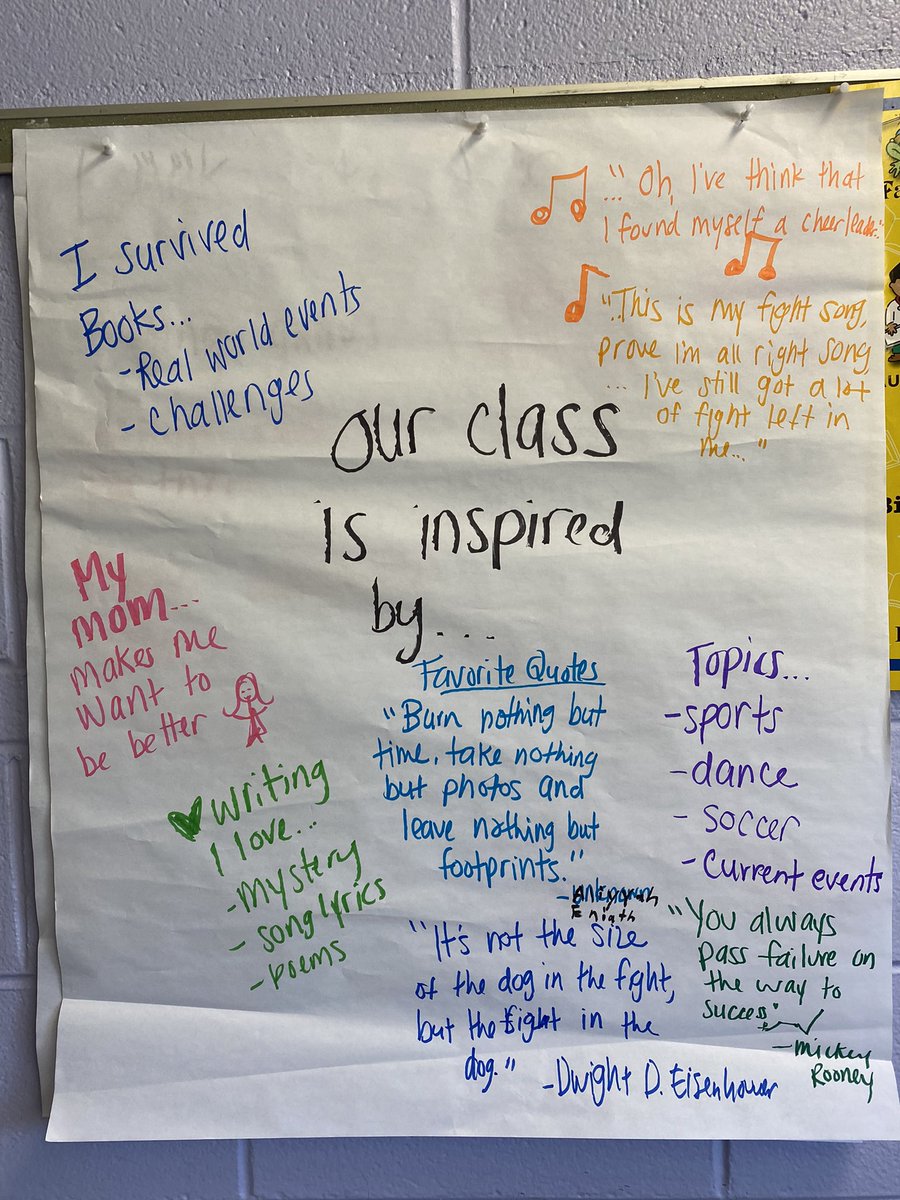 I survived
Books...
- Real world events
- challenges
"... Oh, I've think that
I found myself a cheerleader."
"..This is my fight song,
prove I'm all right song
... I've still got a lot
of fight left in
me..."
our class
is inspired
by...
My
mom...
makes me
want to
be better
Favorite Quotes
"Burn nothing but
time, take nothing
but photos and
leave nothing but
footprints."
Topics...
-sports
-dance
- soccer
- Current events
writing
I love...
-mystery
- song lyrics
- poems
"It's not the size
of the dog in the fight,
but the fight in the
dog."
-Dwight D. Eisenhower
"You always
pass failure on
the way to
success"
-mickey
Rooney